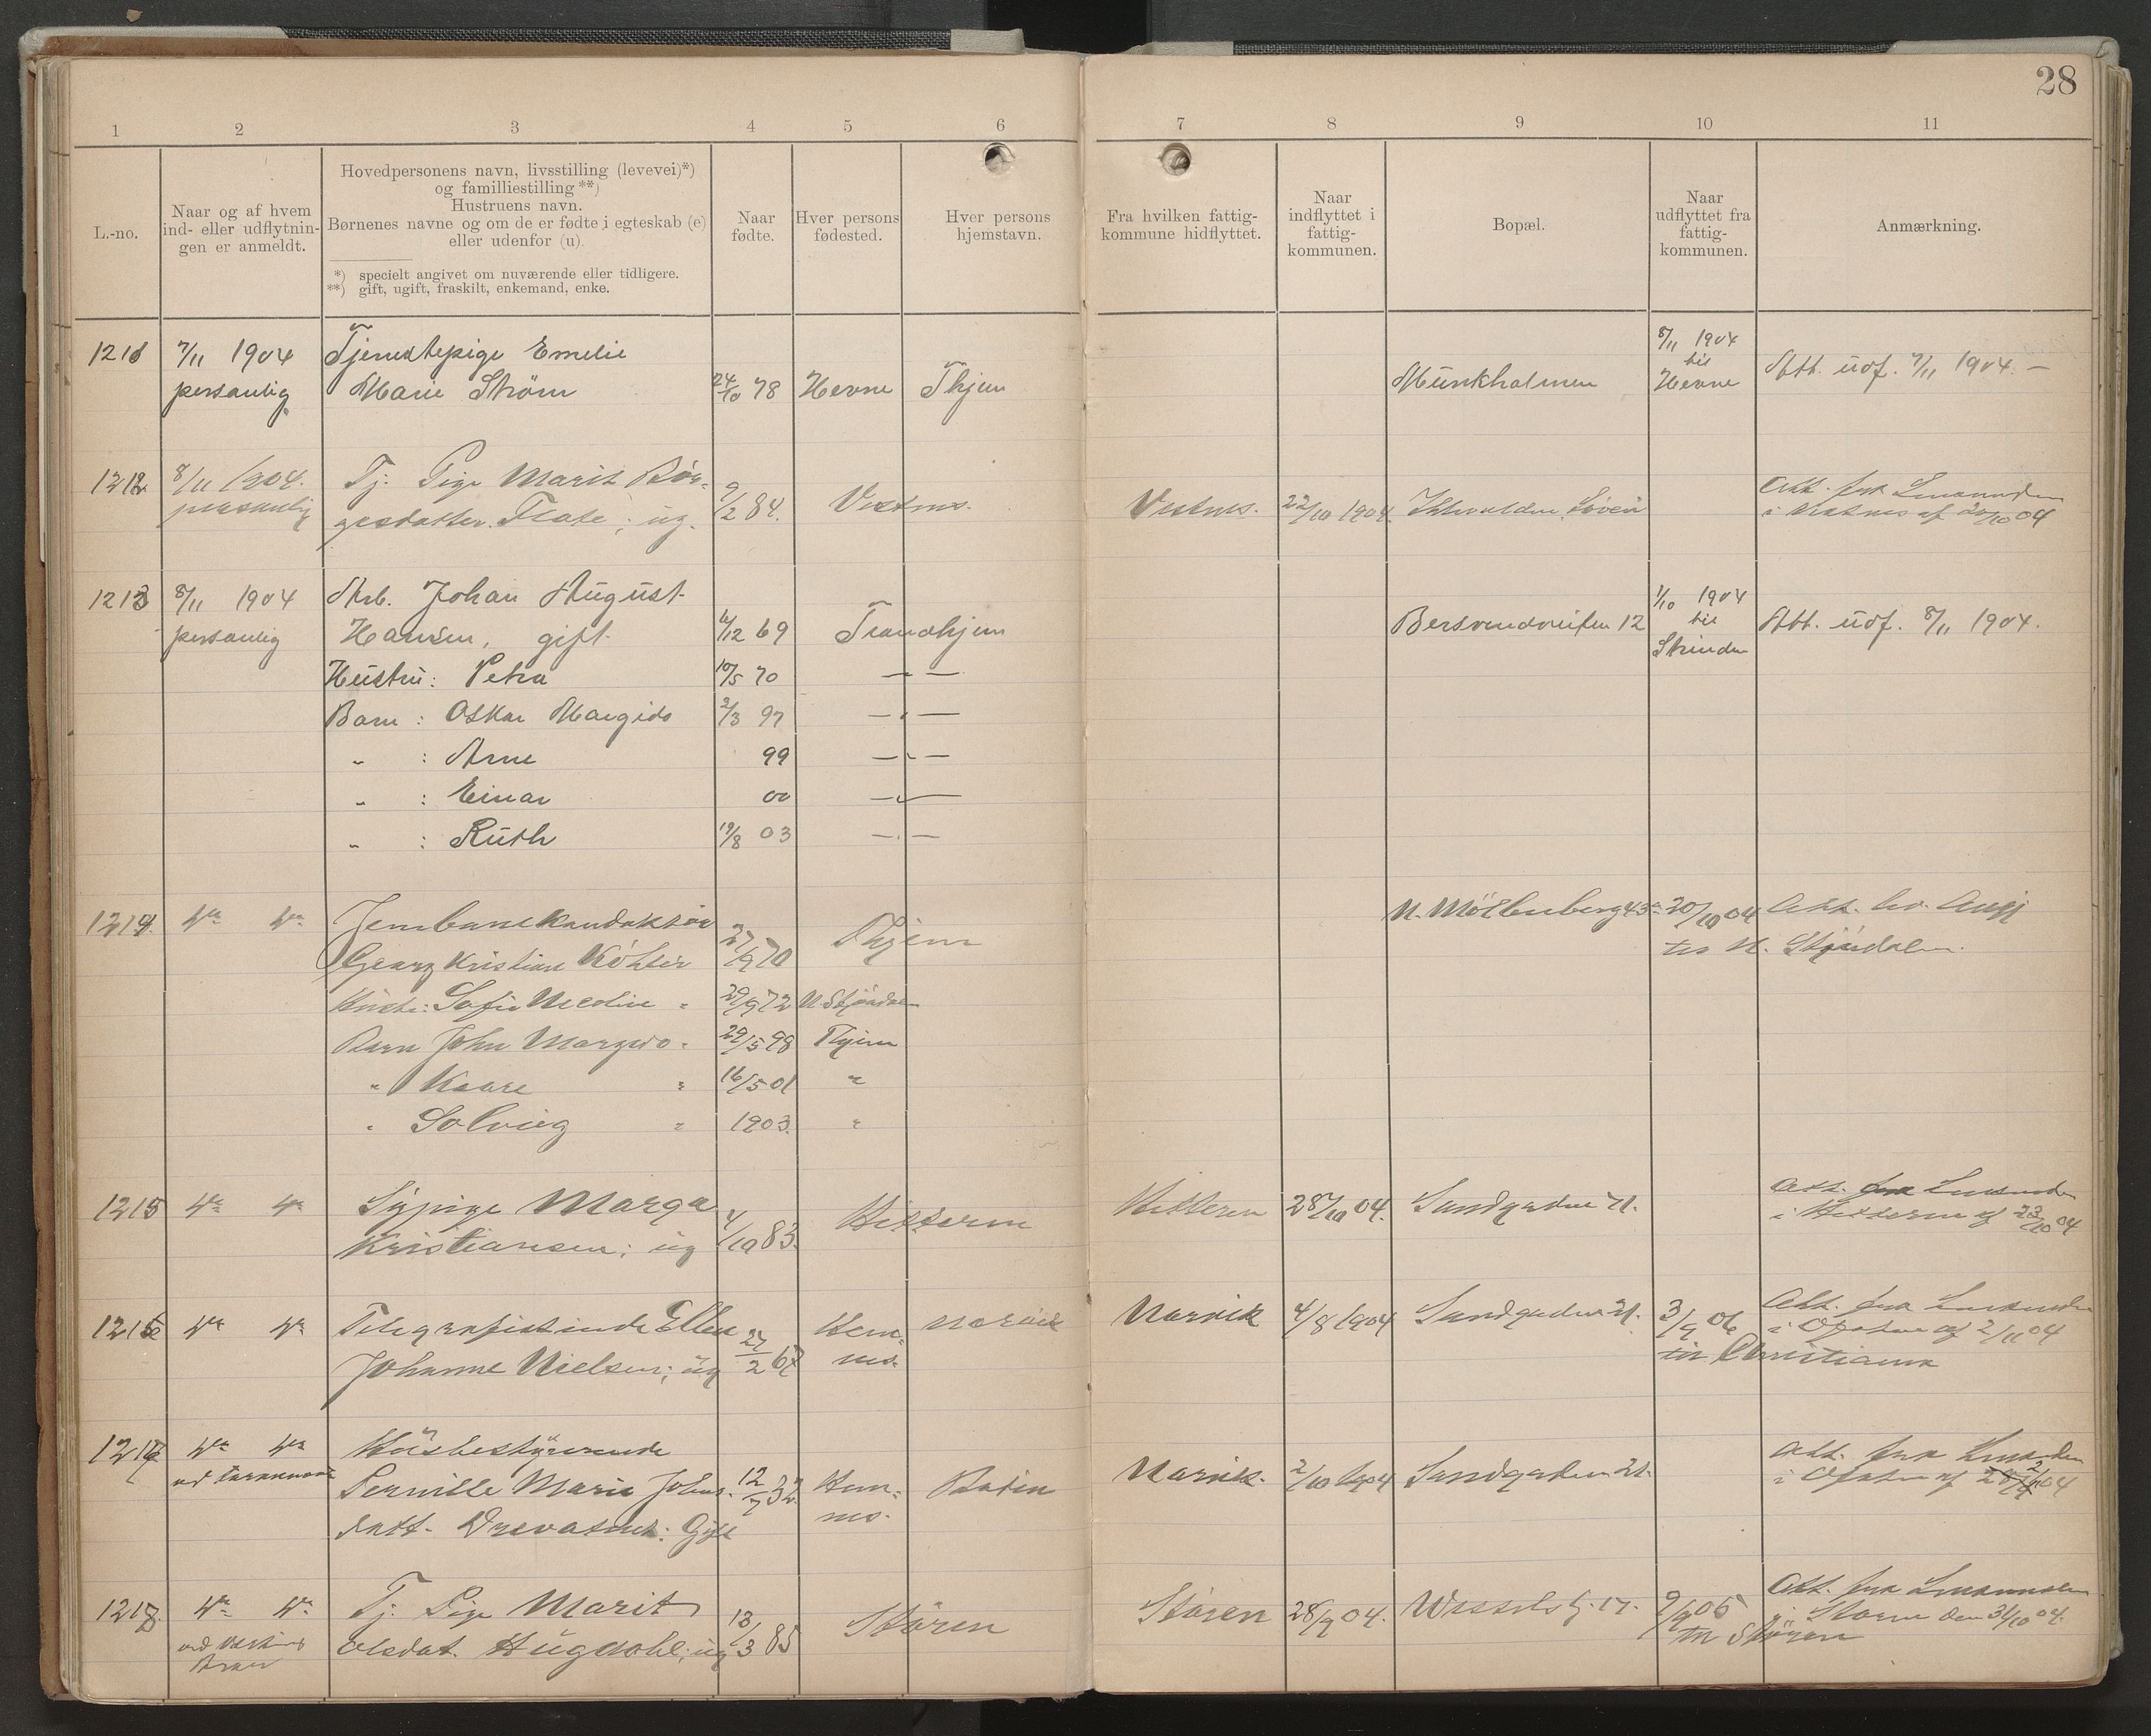 28
1 2 3 4 5 6 7 8 9 10 11
L.-no.
Naar og af hvem
ind- eller udflytnin-
gen er anmeldt.
Hovedpersonens navn, livsstilling (levevei)*)
og familliestilling **)
Hustruens navn.
Børnenes navne og om de er fødte i egteskab (e)
eller udenfor (u).
*) specielt angivet om nuværende eller tidligere.
**) gift, ugift, fraskilt, enkemand, enke.
Naar
fødte.
Hver persons
fødested.
Hver persons
hjemstavn.
Fra hvilken fattig-
kommune hidflyttet.
Naar
indflyttet i
fattig-
kommunen.
Bopæl.
Naar
udflyttet fra
fattig-
kommunen.
Anmærkning.
1211 7/11 1904 Tjenestepige Emelie 8/11 1904
personlig Marie Strøm 24/10 78 Hevne Thjem Munkholmen til Hevne Att. udf. 7/11 1904. —
1212 8/11 1904. Tj. Pige Marit Bør- Att. fra
personlig gesdatter Flate; ug. 9/2 84. Vestnes. Vestnes. 22/10 1904. i Vestnes af 20/10 04
1213 8/11 1904 Arb. Johan August 1/10 1904
personlig Hansen, gift 6/12 69 Trondhjem Bersvendveiten 12 til Att. udf. 8/11 1904.
Strinden
Hustru: Petra 10/5 70 — " —
Barn : Oskar Margido 2/3 97 — " —
" : Arne 99 — " —
" : Einar 00 — " —
" : Ruth 19/8 03 — " —
1214 Jernbanekonduktør N. Möllenberg 43 20/10 04 Att.
Georg Kristian Köhler 27/9 70 Thjem til N. Stjørdalen.
Hustr: Sofie Nicoline " 29/9 72 N. Stjørdalen
Barn John Margido " 29/5 98 Thjem
" Kaare " 16/5 01 "
" Solveig " 1903. "
1215 Sypige Marga Hitteren 28/10 04. Sandgaden 21. Att. fra
Kristiansen; ug 4/10 83. Hitteren i Hitteren af 23/10 04
1216 Telegrafistinde Ellen Hem- Narvik Narvik 4/8 1904 Sandgaden 21. 3/9 06 Att. fra
Johanne Nielsen; ug 27/2 67 nes. i Ofoten af 2/11 04
til Christiania
1217 Husbestyrerinde Att. fra
Pernille Marie Johns- 12/7 32. Hem- Bodin Narvik. 2/10 1904 Sandgaden 21. i Ofoten af
datt. Gift nes.
1218 Tj. Pige Marit Støren 28/9 04. Wessels g. 17. 9/9 05 Att. fra
Olsdat. Hugdahl; ug 13/3 85 Støren til Støren i Støren den 31/10 04.